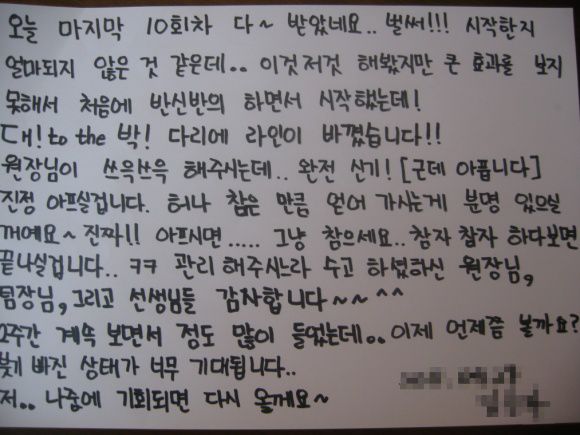 오늘 마지막 10회차 다~ 받았네요.. 벌써!!! 시작한지
얼마되지 않은 것 같은데.. 이것저것 해봤지만 큰 효과를 보지
못해서 처음에 반신반의 하면서 시작했는데!
대! to the 박! 다리에 라인이 바꼈습니다!!
원장님이 쓰윽쓰윽 해주시는데.. 완전 신기! [근데 아픕니다]
진정 아프실겁니다. 허나 참은 만큼 얻어 가시는게 분명 있으실
꺼예요~ 진짜!! 아프시면..... 그냥 참으세요.. 참자 참자 하다보면
끝나실겁니다.. ㅋㅋ 관리 해주시느라 수고 하셨하신 원장님,
팀장님, 그리고 선생님들 감사합니다~~ ^^
2주간 계속 보면서 정도 많이 들었는데.. 이제 언제쯤 볼까요?
붓기 빠진 상태가 너무 기대됩니다..
저.. 나중에 기회되면 다시 올께요~